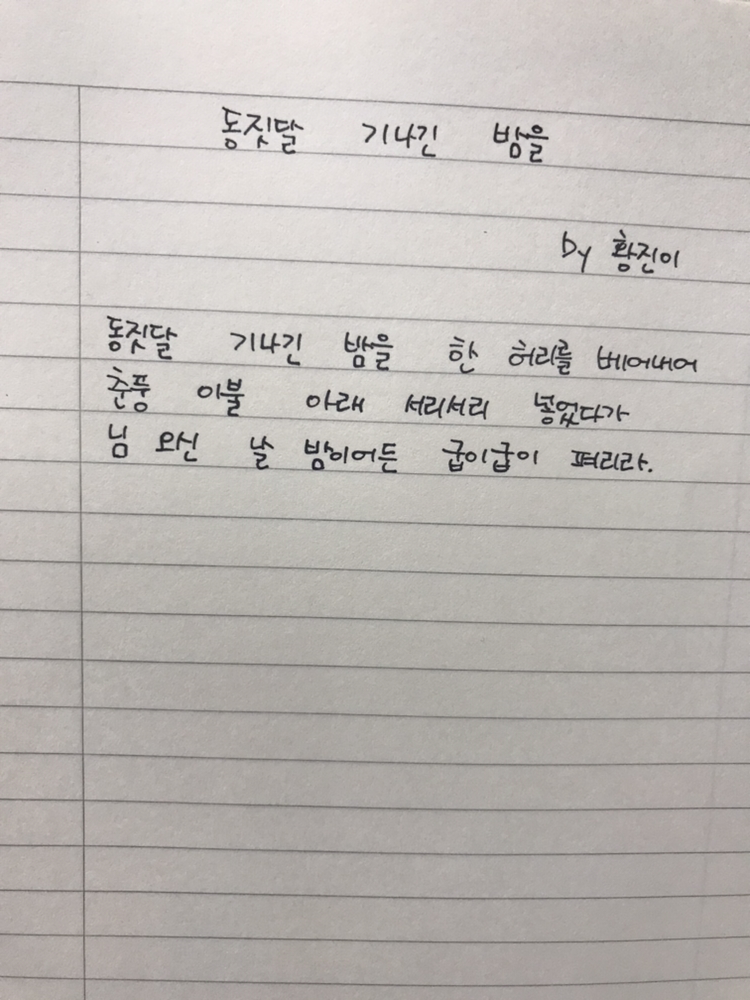 동짓달 기나긴 밤을
by 황진이
동짓달 기나긴 밤을 한 허리를 베어내어
춘풍 이불 아래 서리서리 넣었다가
님 오신 날 밤이어든 굽이굽이 펴리라.